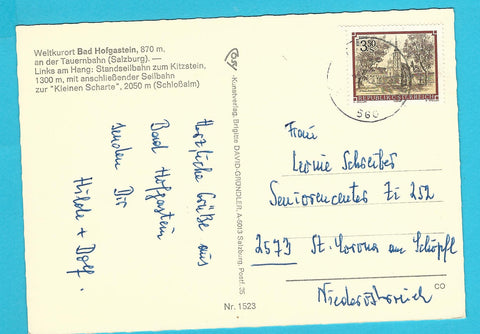 Weltkurort Bad Hofgastein, 870 m,
an der Tauernbahn (Salzburg). —
Links am Hang: Standseilbahn zum Kitzstein,
1300 m, mit anschließender Seilbahn
zur "Kleinen Scharte", 2050 m (Schloßalm)
Herzliche Grüße aus
Bad Hofgastein
senden Dir
Hilde + Dolf.
-Kunstverlag, Brigitte DAVID-GRÜNDLER, A-5013 Salzburg, Postf. 35
Nr. 1523
3.50
REPUBLIK ÖSTERREICH
560
Frau
Leonie Schreiber
Seniorencenter Zi 252
2573 St. Corona am Schöpfl
Niederösterreich
CO